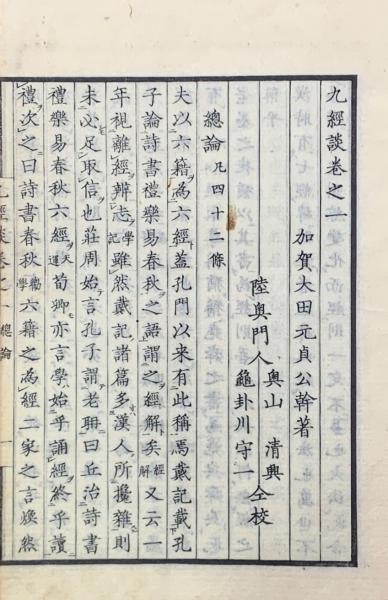 九經談卷之一
加賀大田元貞公幹著
陸奥門人 奥山 清興 仝校
龜卦川守一
總論 凡四十二條
夫以六籍為六經蓋孔門以來有此稱焉戴記載孔
子論詩書禮樂易春秋之語謂之經解矣 經解 又云一
年視離經辨志 學記 雖然戴記諸篇多漢人所攙雜則
未必足取信也莊周始言孔子謂老聃曰丘治詩書
禮樂易春秋六經 天道 荀卿亦言學始乎誦經終乎讀
禮次之曰詩書春秋 勸學 六籍之為經二家之言煥然
九經談卷之一 總論 一